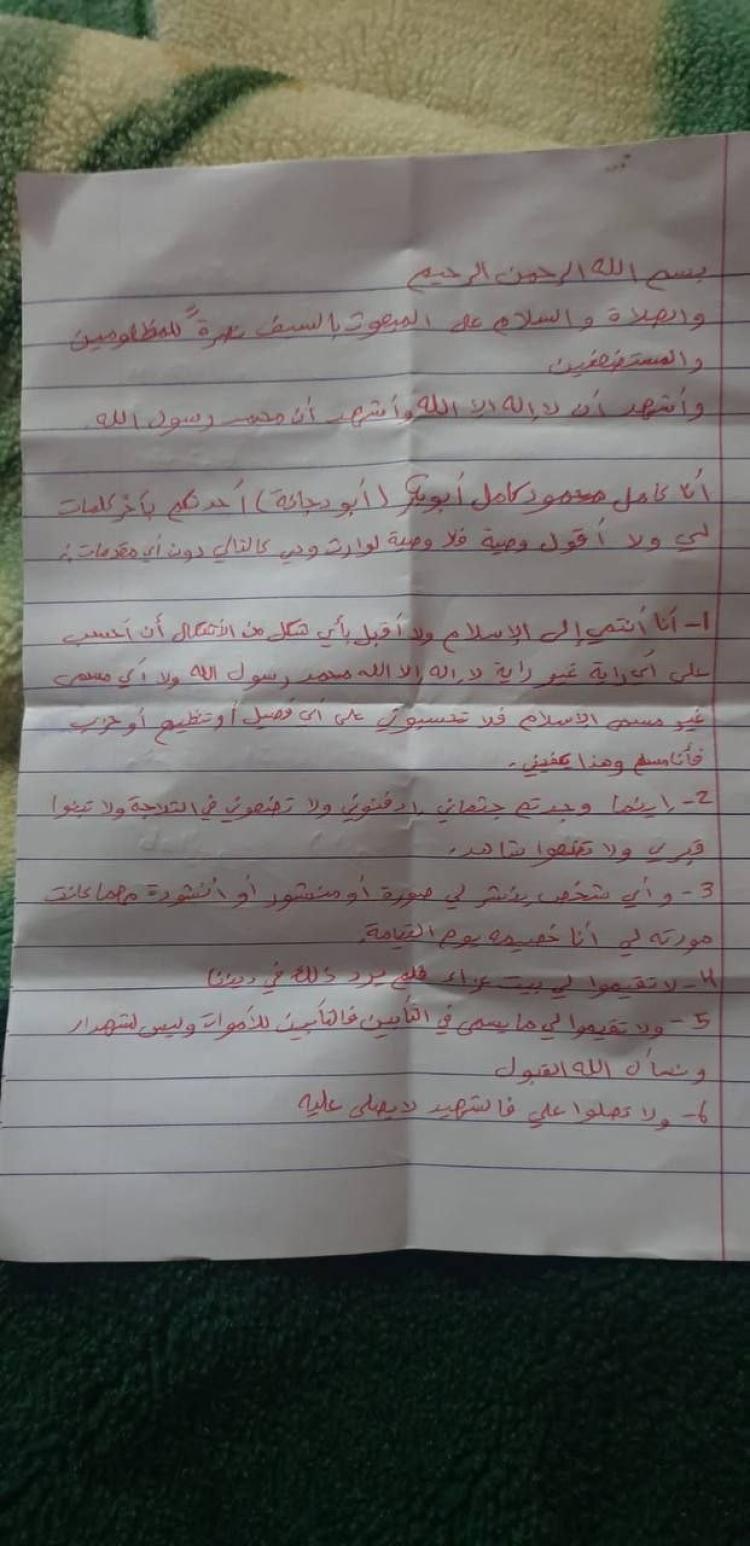 بسم الله الرحمن الرحيم
والصلاة والسلام على المبعوث بالسيف نصرةً للمظلومين
والمستضعفين
وأشهد أن لا إله إلا الله وأشهد أن محمد رسول الله
أنا كامل محمود كامل أبوبكر (أبو دجانة) أحدثكم بآخر كلمات
لي ولا أقول وصية فلا وصية لوارث وهي كالتالي دون أي مقدمات :
1- أنا أنتمي إلى الإسلام ولا أقبل بأي شكل من الأشكال أن أحسب
على أي راية غير راية لا إله إلا الله محمد رسول الله ولا أي مسمى
غير مسمى الإسلام فلا تحسبوني على أي فصيل أو تنظيم أو حزب
فأنا مسلم وهذا يكفيني .
2- اينما وجدتم جثماني ادفنوني ولا تضعوني في الثلاجة ولا تبنوا
قبري ولا تضعوا شاهد .
3- و أي شخص ينشر لي صورة أو منشور أو أنشودة مهما كانت
مورته لي أنا خصيمه يوم القيامة
4- لا تقيموا لي بيت عزاء فلم يرد ذلك في ديننا
5- ولا تقيموا لي ما يسمى في التأبين فالتأبين للأموات وليس لشهداء
ونسأل الله القبول
6- ولا تصلوا علي فالشهيد لا يصلى عليه